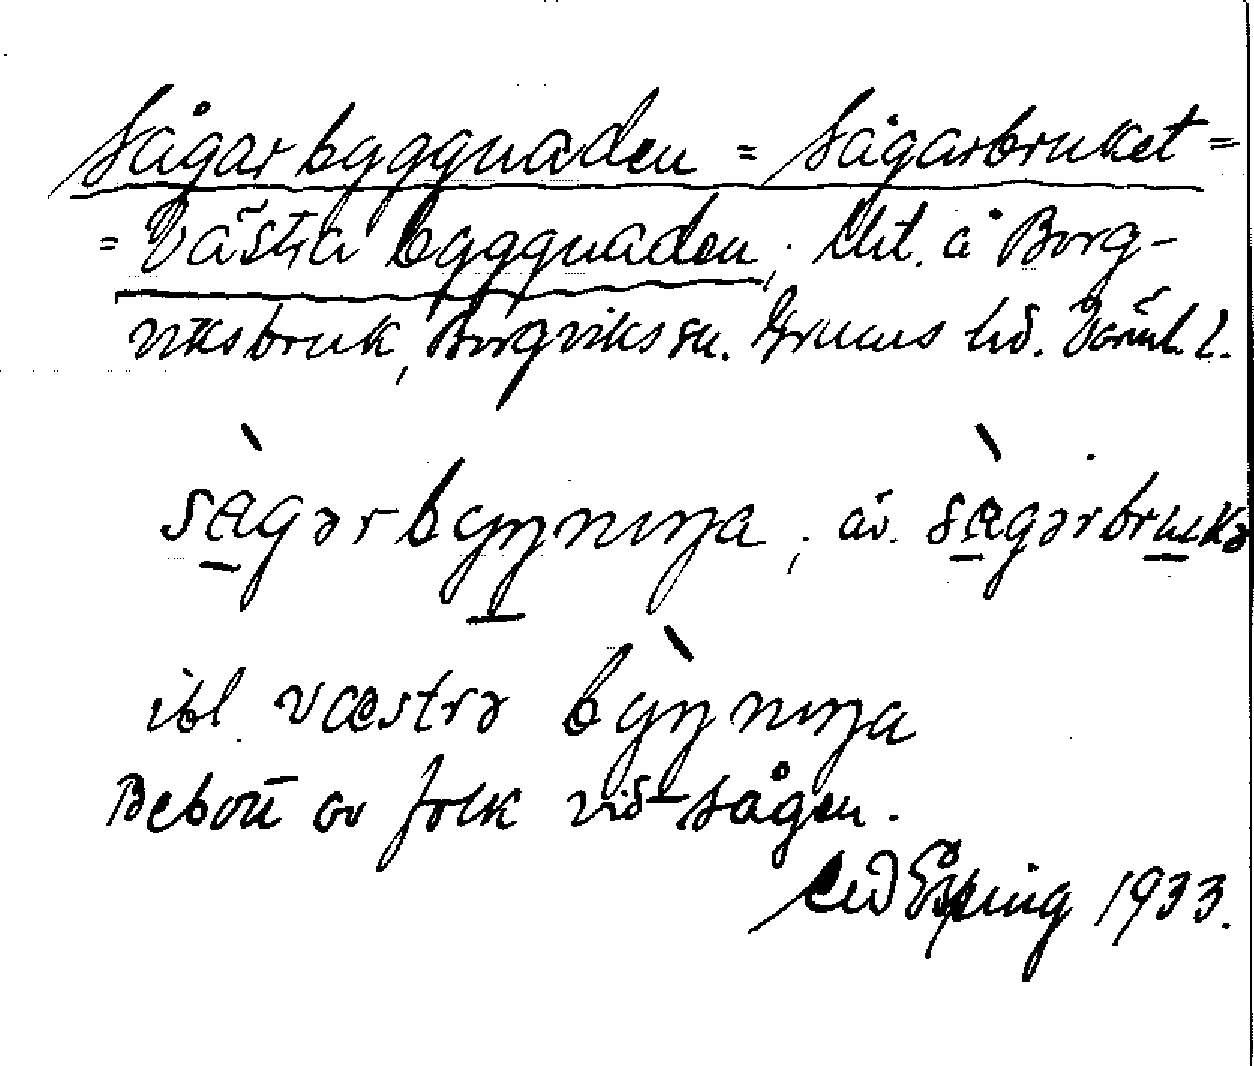 Sågarbyggnaden = Sågarbruket =
= Västra byggnaden, Utt. å Borg-
viksbruk, Borgviks sn. Grums hd. Värml. l.
sàgərbyŋnıŋa, äv. sàgərbrukə
ibl væstrə bỳŋnıŋa
Bebott av folk vid sågen.
1933.